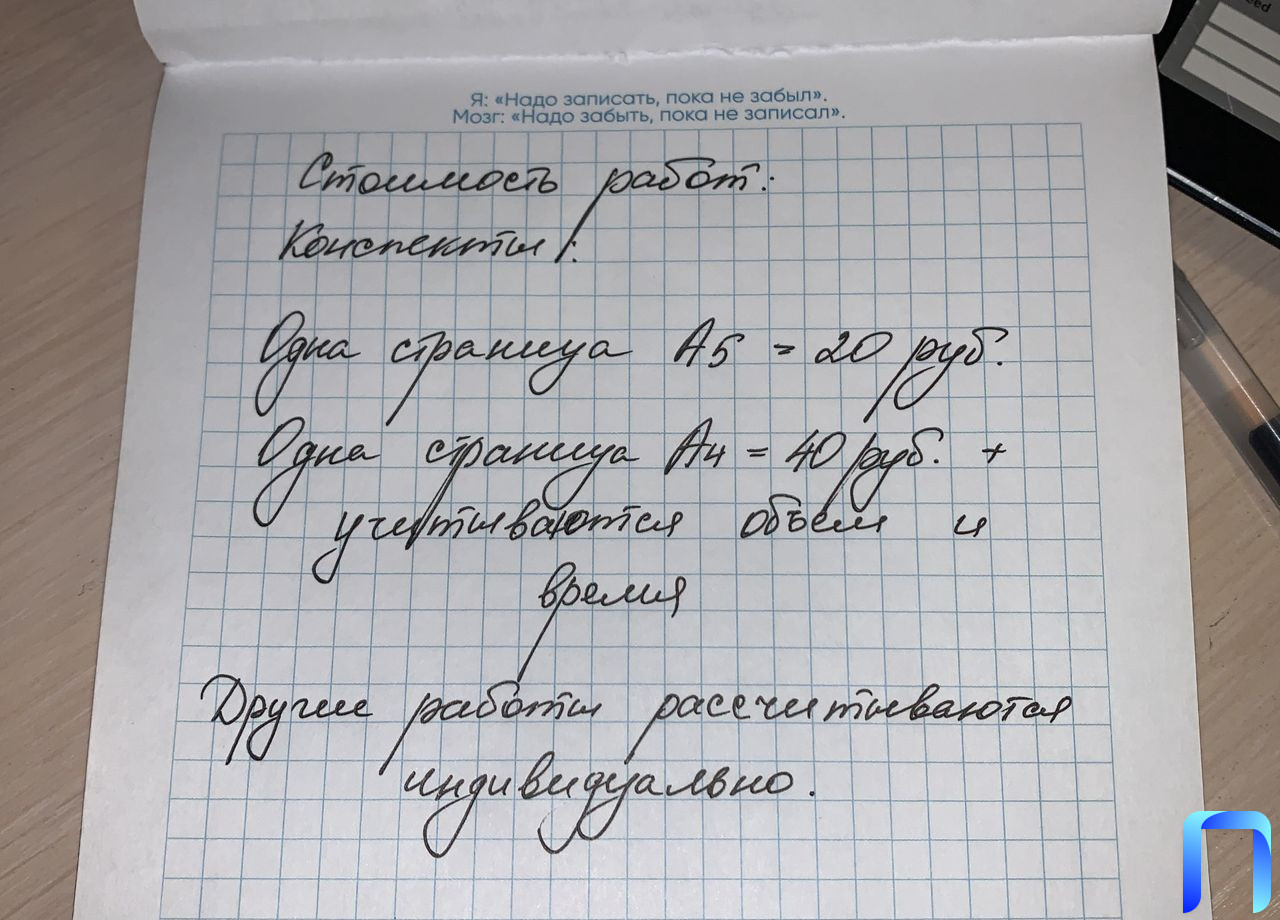 Я: «Надо записать, пока не забыл».
Мозг: «Надо забыть, пока не записал».
Стоимость работ:
Конспекты:
Одна страница А5 = 20 руб.
Одна страница А4 = 40 руб. +
учитываются объем и
время
Другие работы рассчитываются
индивидуально.